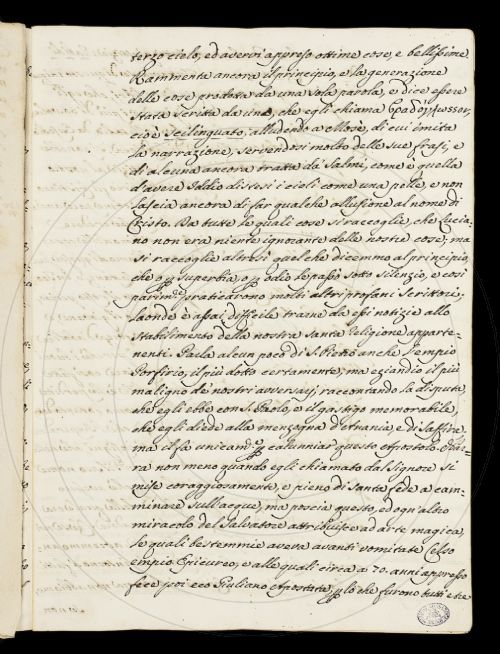 terzo cielo, ed avervi appreso ottime cose, e bellissime.
Rammenta ancora il principio, e la generazione
delle cose prodotta da una sola parola, e dice essere
stata scritta da uno, che egli chiama
cioè Scilinguato, alludendo a Mosè, di cui imita
la narrazione, servendosi molto delle sue frasi, e
di alcuna ancora tratta da' Salmi, come è quella
d'avere Iddio distesi i cieli come una pelle, e non
lascia ancora di far qualche allusione al nome di
Cristo. Da tutte le quali cose si raccoglie, che Lucia-
no non era niente ignorante delle nostre cose, ma
si raccoglie altresì quel che dicemmo al principio,
che o p superbia, o p odio le passò sotto silenzio, e così
parim.te praticarono molti altri profani Scrittori,
laonde è assai difficile trarne da essi notizie allo
stabilimento della nostra Santa Religione apparte-
nenti. Parla alcun poco di S. Pietro anche l'empio
Porfirio, il più dotto certamente, ma eziandio il più
maligno de' nostri avversarj, raccontando la disputa,
che egli ebbe con S. Paolo, e il gastigo memorabile,
che egli diede alla menzogna d'Anania, e di Saffira,
ma il fa unicam.te p calunniar questo Apostolo.
ra non meno quando egli chiamato dal Signore si
mise coraggiosamente, e pieno di Santa fede a cam-
minare sull'acque, ma poscia questo, ed ogn'altro
miracolo del Salvatore attribuisce ad arte magica,
le quali bestemmie aveva avanti vomitate Celso
empio Epicureo, e alle quali circa a 70. anni appresso
fece poi eco Giuliano Apostata, p lo che furono tutti e tre